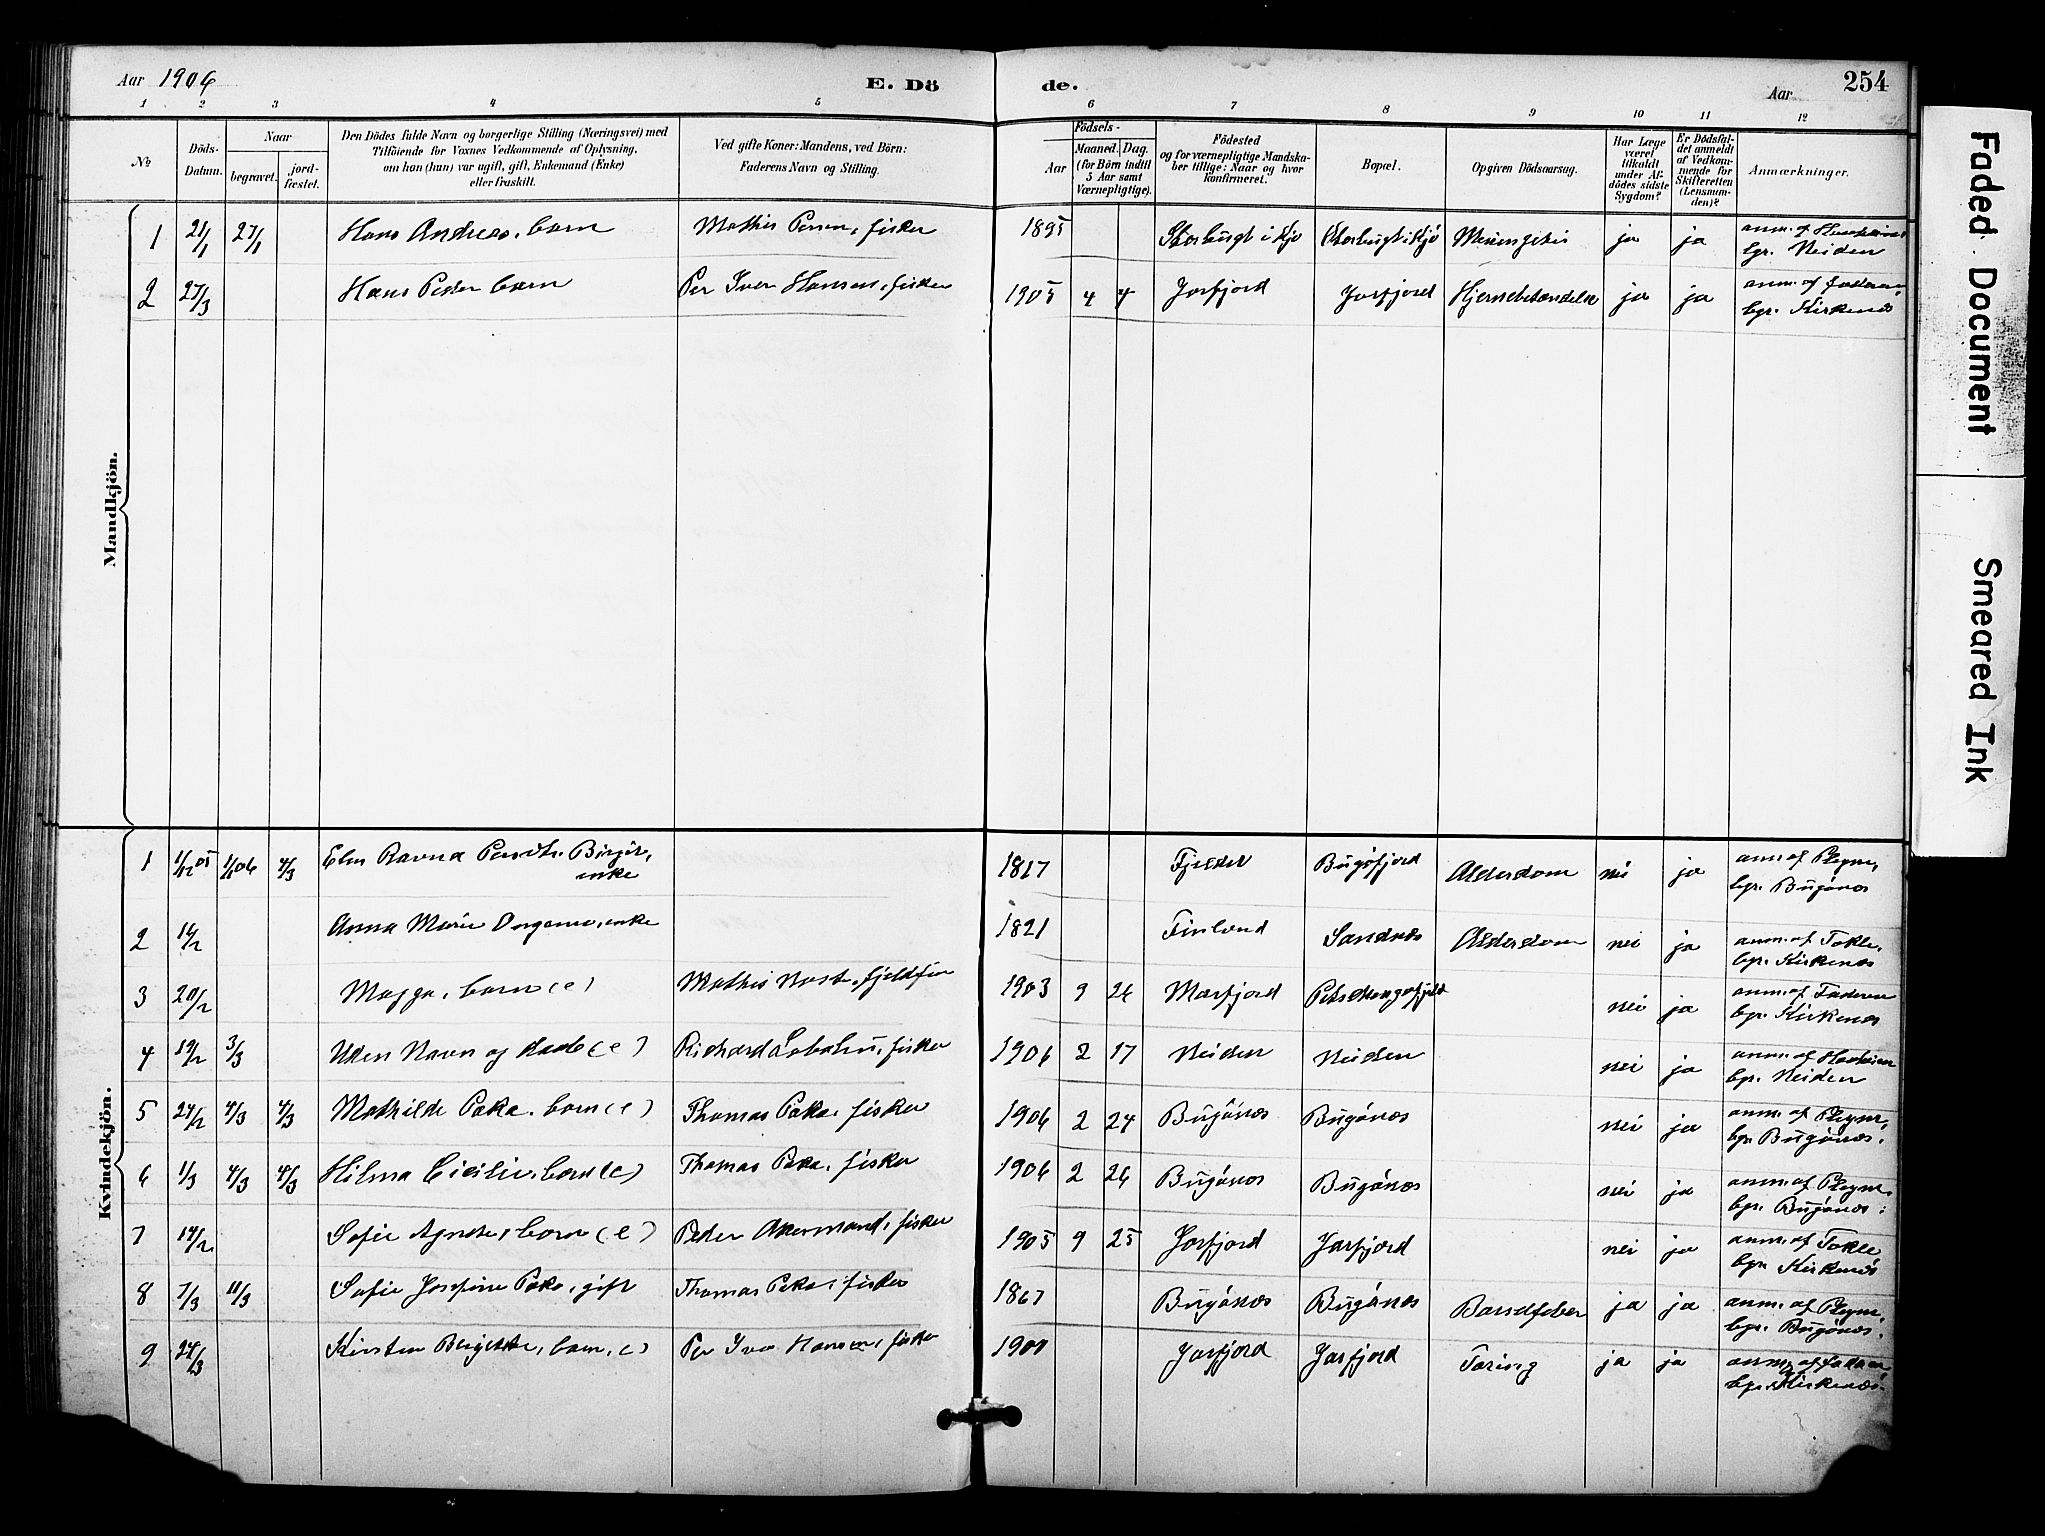 Aar 1906 E. Dö de. Aar 254
1 2 3 4 5 6 7 8 9 10 11 12
No
Döds-Datum.
Naar
begravet.
jord-fæstet.
Den Dödes fulde Navn og borgerlige Stilling (Næringsvei) med
Tilföiende for Voxnes Vedkommende af Oplysning,
om han (hun) var ugift, gift, Enkemand (Enke)
eller fraskilt.
Ved gifte Koner: Mandens, ved Börn:
Faderens Navn og Stilling.
Födsels-
Aar
Maaned. Dag.
(for Börn indtil
5 Aar samt
Værnepligtige).
Födested
og for værnepligtige Mandska-
ber tillige: Naar og hvor
konfirmeret.
Bopæl.
Opgiven Dödsaarsag.
Har Læge
været
tilkaldt
under Af-
dödes sidste
Sygdom?
Er Dödsfal-
det anmeldt
af Vedkom-
mende for
Skifteretten
(Lensman-
den)?
Anmærkninger.
Mandkjön.
1 21/1 27/1 Hans Andreas, barn Mathis Persen, fisker 1895 Storbugt i Kjø Storbugt i Kjø Meningitis ja ja anm. af
bgr. Neiden
2 27/3 Hans Peder barn Per Iver Hansen, fisker 1905 4 4 Jarfjord Jarfjord Hjernebetændelse ja ja anm. af faderen,
bgr. Kirkenæs
Kvindekjön.
1 1/12 05 1/1 06 4/3 Elen Ravna
enke 1817 Fjelder Bugøfjord Alderdom nei ja anm. af
bgr. Bugønæs
2 16/2 Anna Marie enke 1821 Finland Sandnæs Alderdom nei ja anm. af Takle,
bgr. Kirkenæs
3 20/2 Magga, barn (e) Mathis fjeldfin 1903 9 26 nei ja anm. af Faderen
bgr. Kirkenæs
4 19/2 3/3 Uden Navn og daab (e) Richard fisker 1906 2 17 Neiden Neiden nei ja anm. af
bgr. Neiden
5 24/2 4/3 4/3 Mathilde Paka, barn (e) Thomas Paka, fisker 1906 2 24 Bugønæs Bugønæs nei ja anm. af
bgr. Bugønæs.
6 1/3 4/3 4/3 Hilma Cicilie, barn (e) Thomas Paka, fisker 1906 2 26 Bugønæs Bugønæs nei ja anm. af
bgr. Bugønæs.
7 14/2 Sofie Agnete, barn (e) Peder Akermand, fisker 1905 9 25 Jarfjord Jarfjord nei ja anm. af Takle
bgr. Kirkenæs
8 7/3 11/3 Sofie Josefine Paka, gift Thomas Paka, fisker 1867 Bugønæs Bugønæs Barselfeber ja ja anm. af
bgr. Bugønæs.
9 24/3 Kirsten barn, e) Per Iver Hansen, fisker Jarfjord Jarfjord Tæring ja ja anm. af faderen
bgr. Kirkenæs.
Faded Document
Smeared Ink